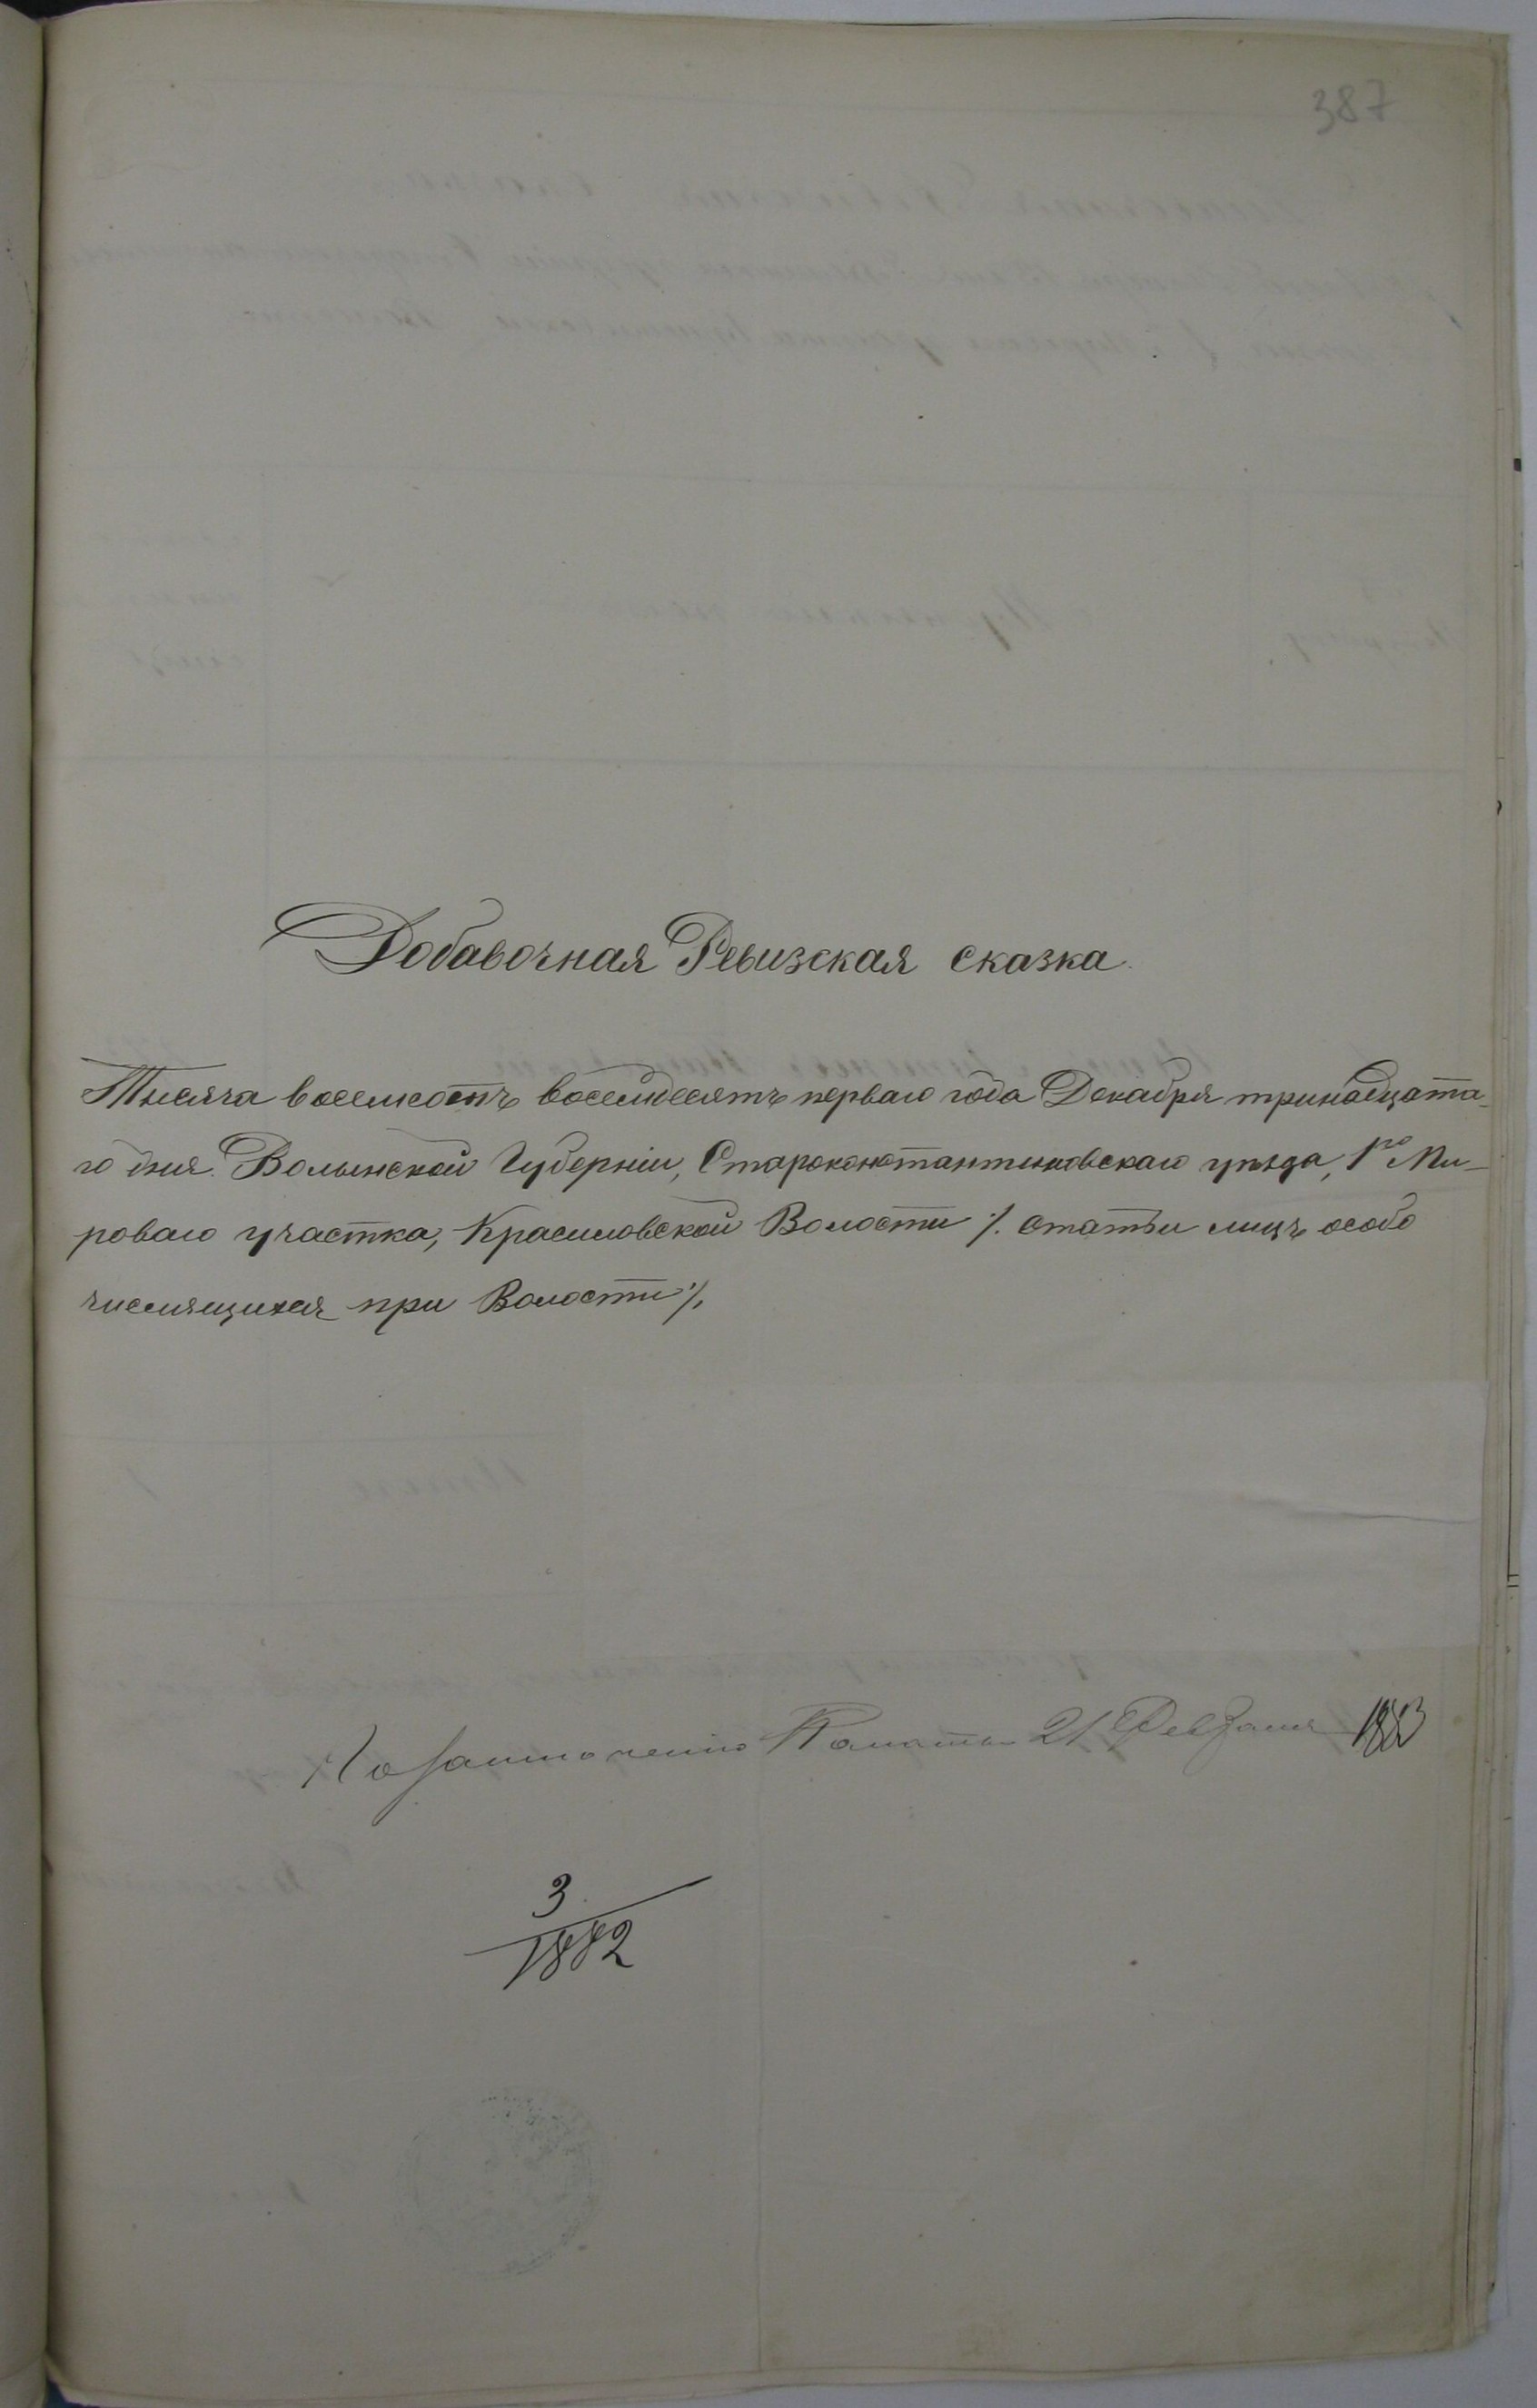 387
Добавочная Ревизская сказка.
Тысяча восемьсотъ восемьдесятъ перваго года Декабря тринадцата-
го дня. Волынской Губерніи, Староконстантиновскаго уѣзда, 1го Ми-
роваго участка, Красиловской Волости /. статьи лицъ особо
числящихся при Волости /.
По заключенію Палаты 21 Февраля 1883
3
1882